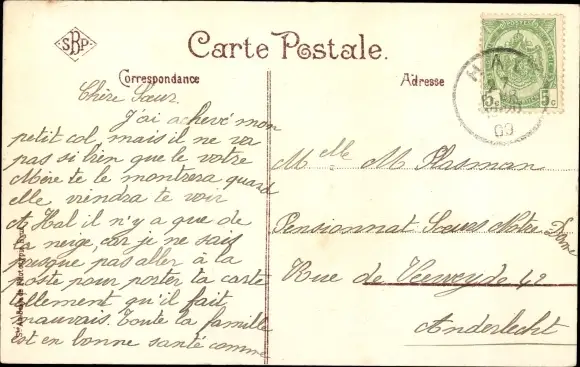 SBP
Carte Postale.
Correspondance
Adresse
5c 5c
09
Chère Sœur.
J'ai achevé mon
petit col, mais il ne va
pas si bien que le votre
Mère te le montrera quand
elle viendra te voir
A Hal il n'y a que de
la neige, car je ne sais
presque pas aller à la
poste pour porter ta carte
tellement qu'il fait
mauvais. Toute la famille
est en bonne santé comme
Melle M Plasman
Pensionnat Sœurs Notre Dame
Rue de Veeweyde 42
Anderlecht